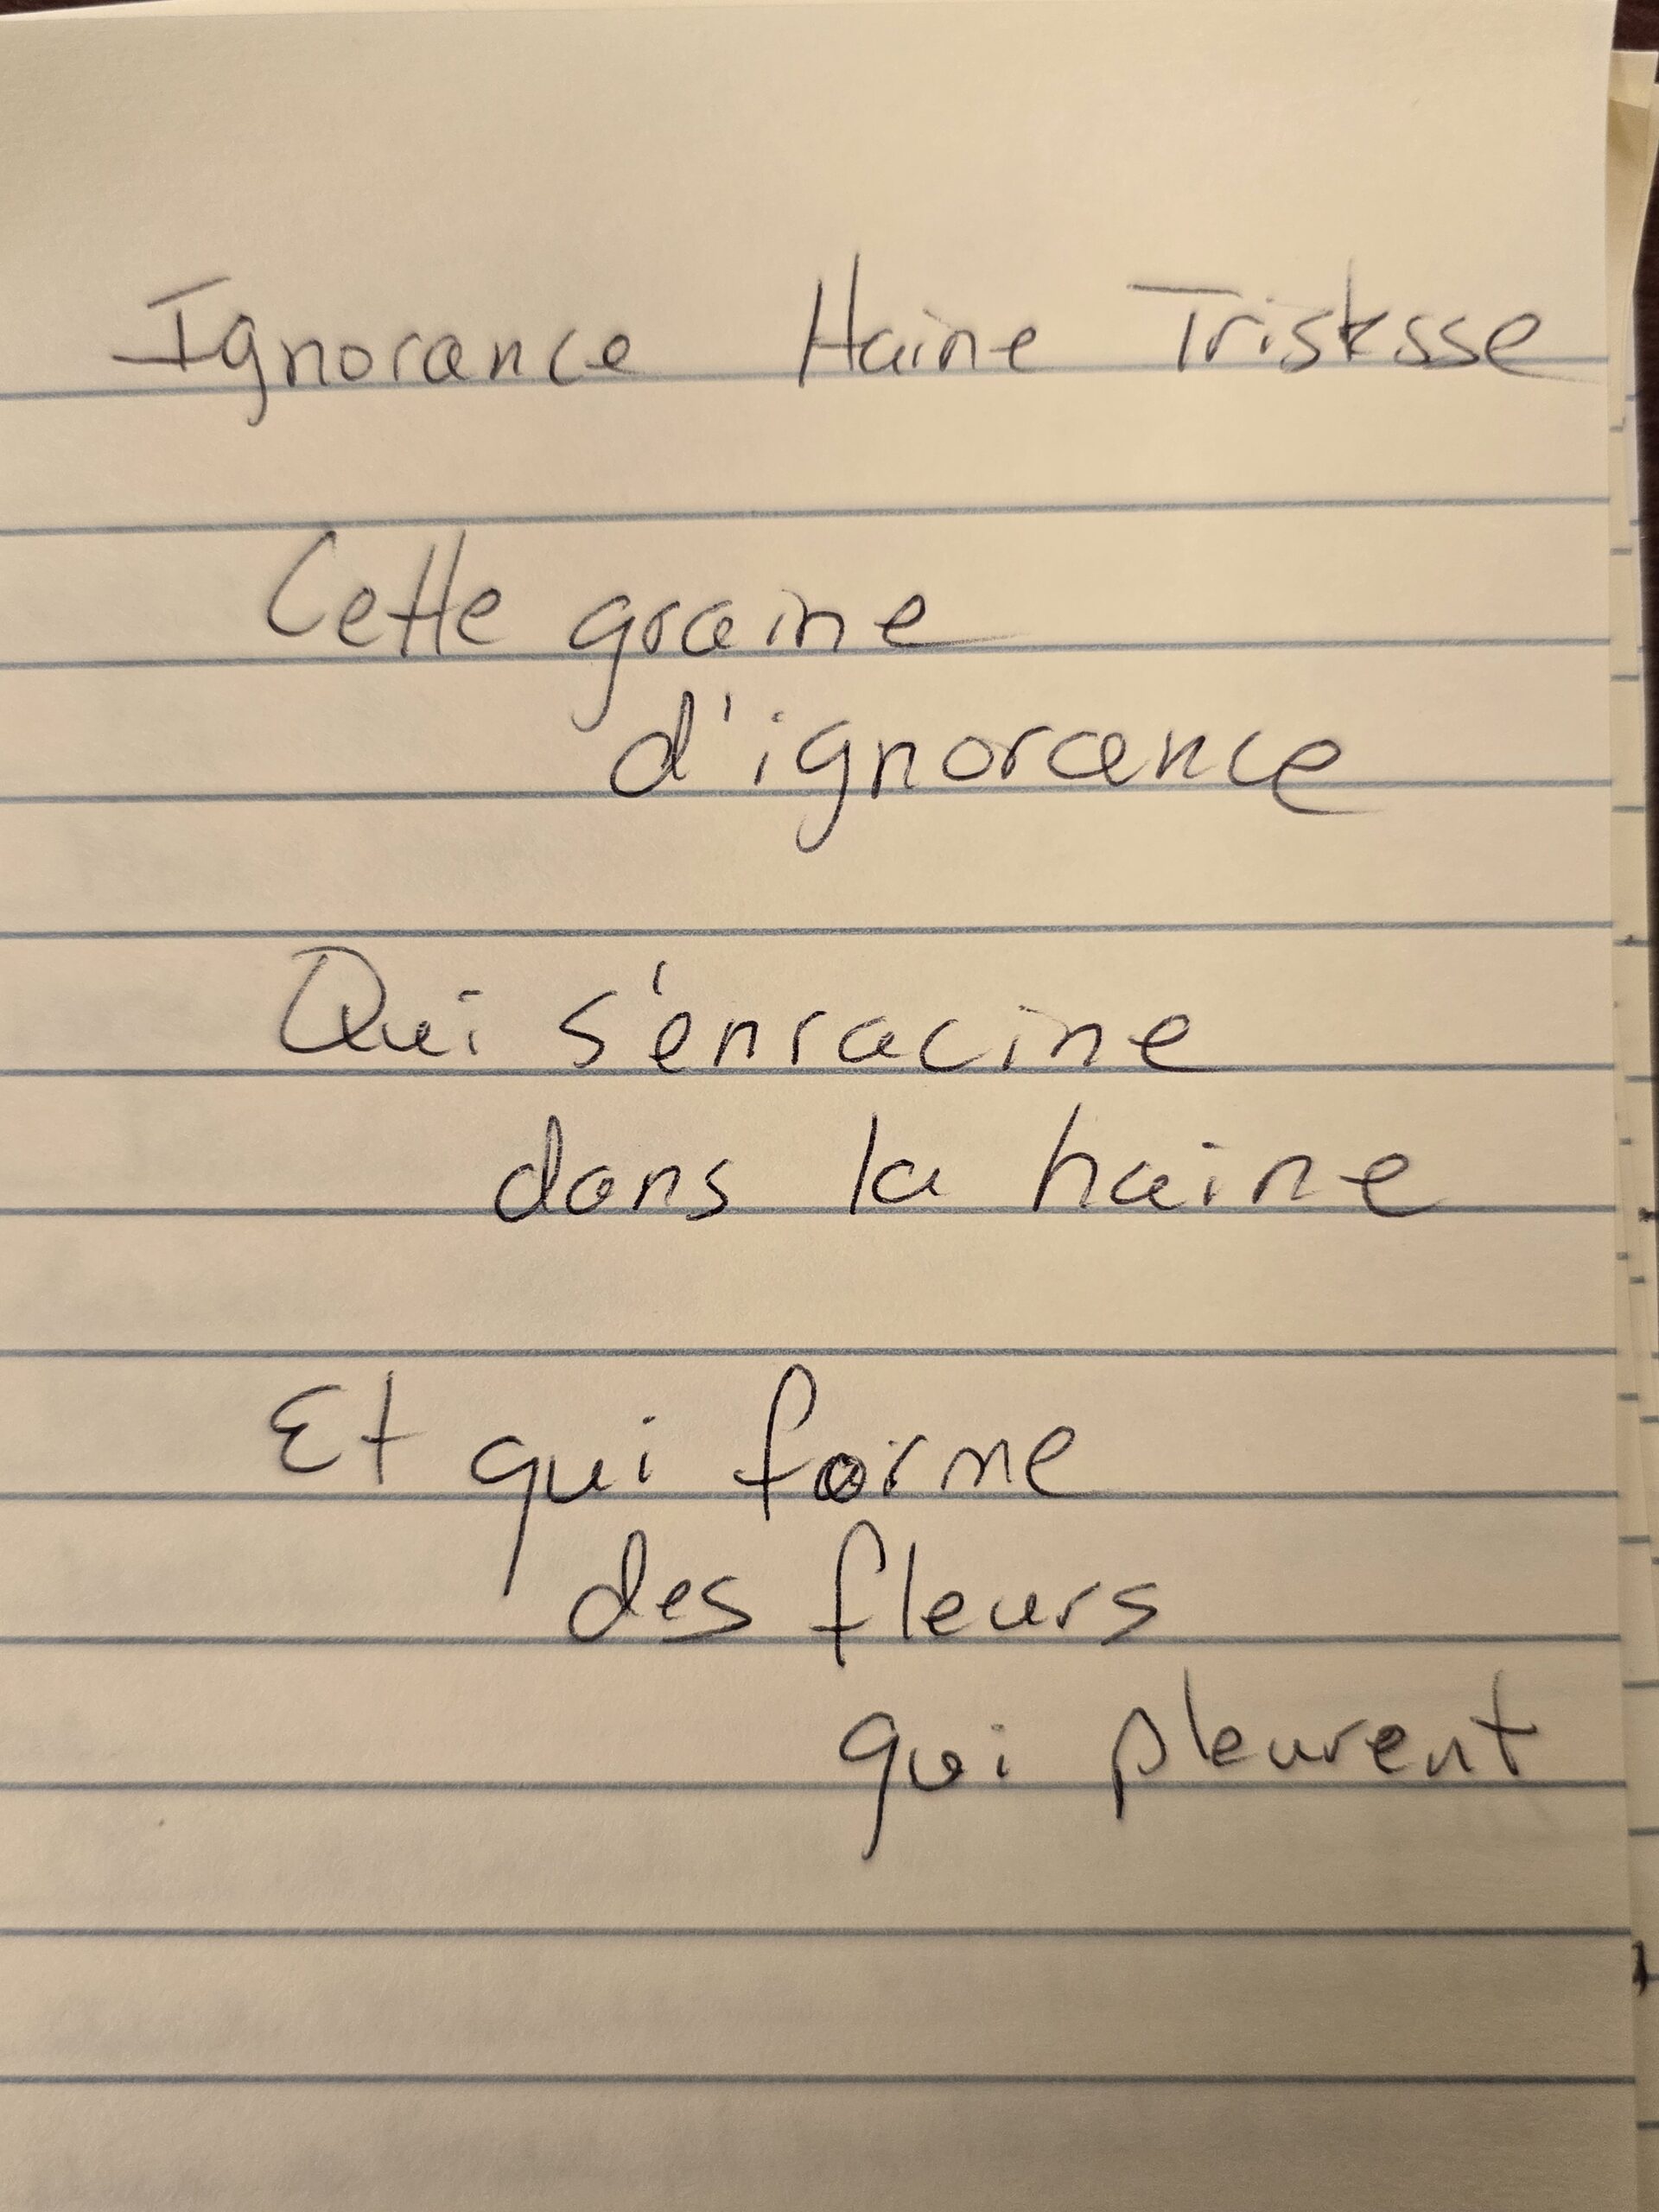 Ignorance Haine Tristesse
Cette graine
d'ignorance
Qui s'enracine
dans la haine
Et qui forme
des fleurs
qui pleurent